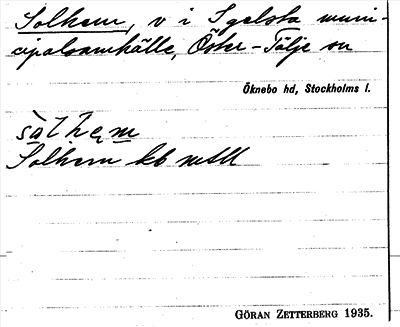 Solhem, v i Igelsta muni-
cipalsamhälle, Öster-Tälje sn
Öknebo hd, Stockholms l.
sàlhęm
Solhem kb
GÖRAN ZETTERBERG 1935.